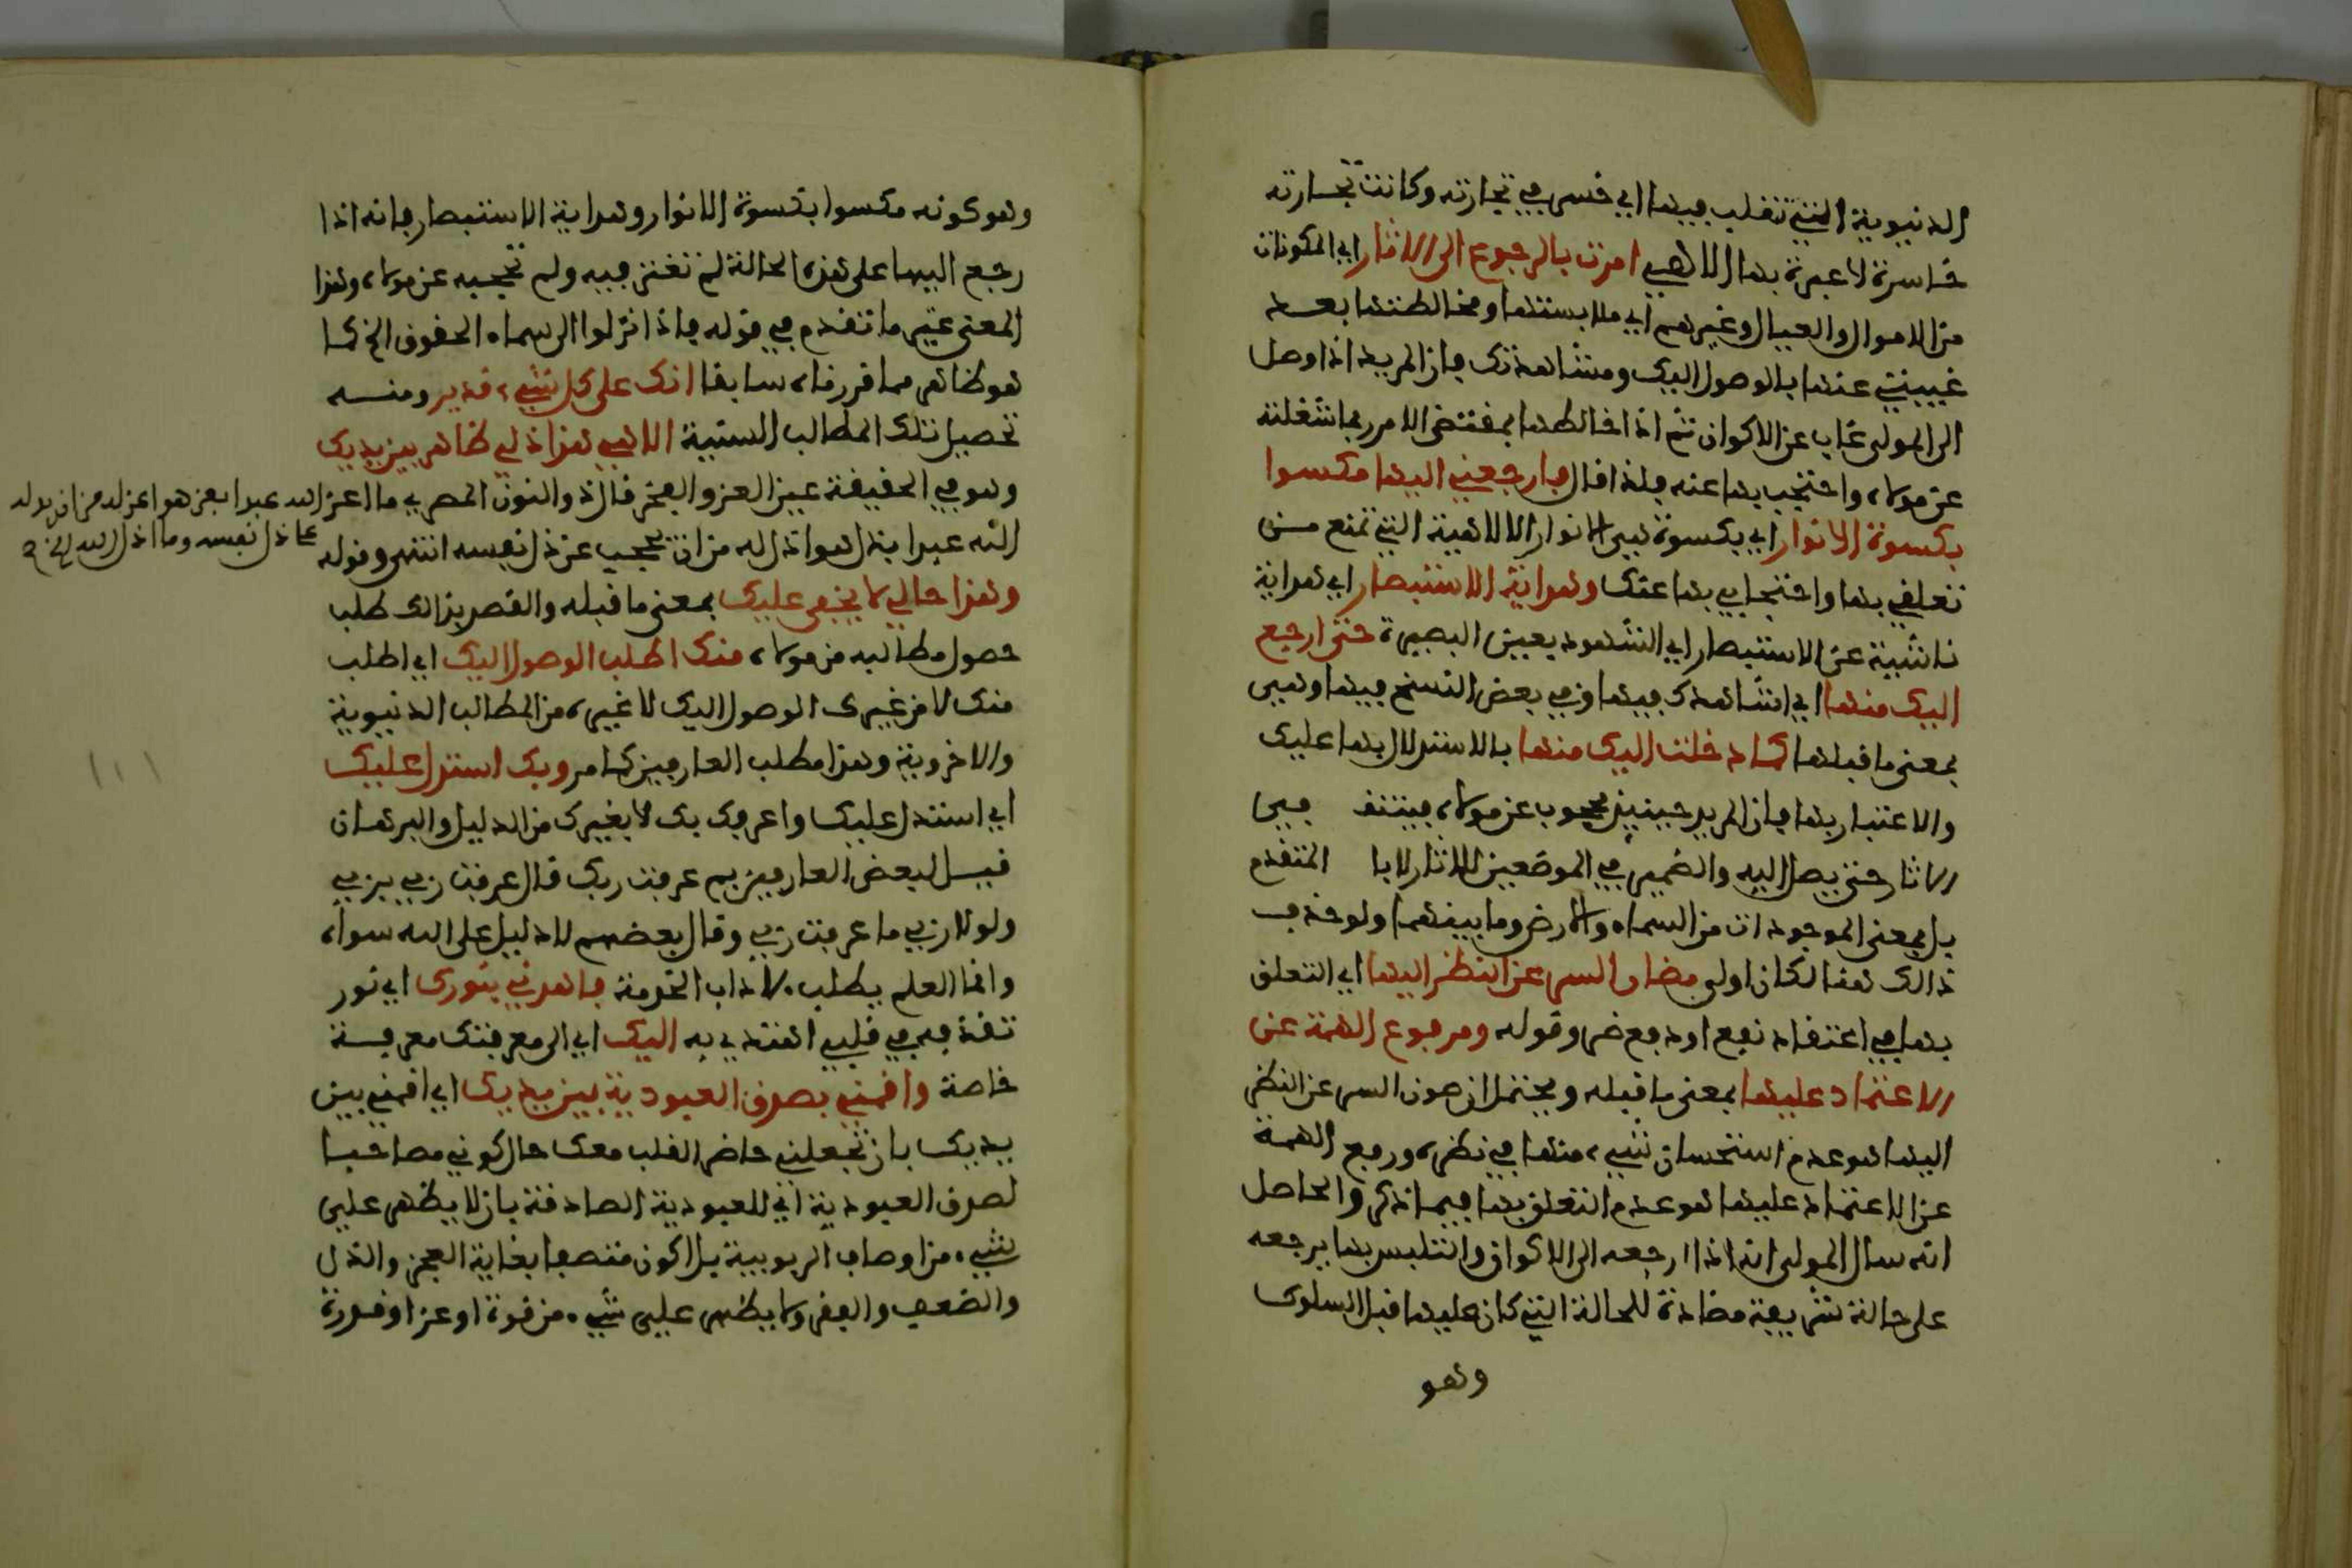 الدنيوية التي تتقلب فيها اي خسر في تجارته وكانت تجارته
خاسرة لا عبرة بها الاهي امرت بالرجوع الى الاثار اي المكونات
من الاموال والعيال وغيرهم اي ملابستها ومخالطتها بعد
غيبتي عنها بالوصول اليك ومشاهدتك فان المريد اذا وصل
الى المولى غاب عن الاكوان ثم اذا خالطها بمقتضى الامر ربما شغلته
عن مولاه واحتجب بها عنه فلذا قال فارجعني اليها مكسوا
بكسوة الانوار اي بكسوة هي الانوار الالاهية التي تمنع من
تعلقي بها واحتجابي بها عنك وهداية الاستبصار اي هداية
ناشية عن الاستبصار اي الشهود بعين البصيرة حتى ارجع
اليك منها اي اشاهدك فيها وفي بعض النسخ فيها وهي
بمعنى ما قبلها كما دخلت اليك منها بالاستدلال بها عليك
والاعتبار بها فان المريد حينيذ محجوب عن مولاه فيتنقد في
الاثار حتى يصل اليه والضمير في الموضعين للاثار لا با المتقدم
بل بمعنى الموجودات من السماء والارض وما بينهما ولو حذف
ذالك هنا لكان اولى مصان السر عن النظر اليها اي التعلق
بها في اعتقاد نفع او دفع ضر وقوله ومرفوع الهمة عن
الاعتماد عليها بمعنى ما قبله ويحتمل ان صون السر عن النظر
اليها هو عدم استحسان شيء منها في نظره ورفع الهمة
عن الاعتماد عليها هو عدم التعلق بها فيما ذكر والحاصل
انه سال المولى انه اذا ارجعه الى الاكوان والتلبس بها يرجعه
على حالة شريفة مضادة للحالة التي كان عليها قبل السلوك
وهو
وهو كونه مكسوا بكسوة الانوار وهداية الاستبصار فانه اذا
رجع اليها على هذه الحالة لم تغنز فيه ولم تحجبه عن مولاه وهذا
المعنى غير ما تقدم في قوله فاذا نزلوا الى سماء الحقوق الخ كما
هو ظاهر مما قررناه سابقا انك على كل شيء قدير ومنه
تحصيل تلك المطالب السنية الاهي هذا ذلي ظاهر بين يديك
وهو في الحقيقة عين العز والفخر قال ذو النون المصري ما اعز الله عبدا بعز هو اعز له من ان يدله
على ذل نفسه وما اذل الله الخ
الله عبدا بذل هو اذل له من ان يحجب عن ذل نفسه انتهى وقوله
وهذا حالي لا يخفى عليك بمعنى ما قبله والقصد بذالك طلب
حصول مطالبه من مولاه منك اطلب الوصول اليك اي اطلب
منك لا من غيرك الوصول اليك لا غيره من المطالب الدنيوية
والاخروية وهذا مطلب العارفين كما مر وبك استدل عليك
اي استدل عليك واعرفك بك لا بغيرك من الدليل والبرهان
قيل لبعض العارفين بم عرفت ربك قال عرفت ربي بربي
ولولا ربي ما عرفت ربي وقال بعضهم لا دليل على الله سواه
وانما العلم يطلب لاداب الخدمة فاهدني بنورك اي نور
تقذفه في قلبي اهتدي به اليك اي الى معرفتك معرفة
خاصة واقمني بصدق العبودية بين يديك اي اقمني بين
يديك بان تجعلني حاضر القلب معك حال كوني مصاحبا
لصدق العبودية اي للعبودية الصادقة بان لا يظهر علي
شيء من اوصاف الربوبية بل اكون متصفا بغاية العجز والذل
والضعف والفقر ولا يظهر علي شيء من قوة او عز او قدرة